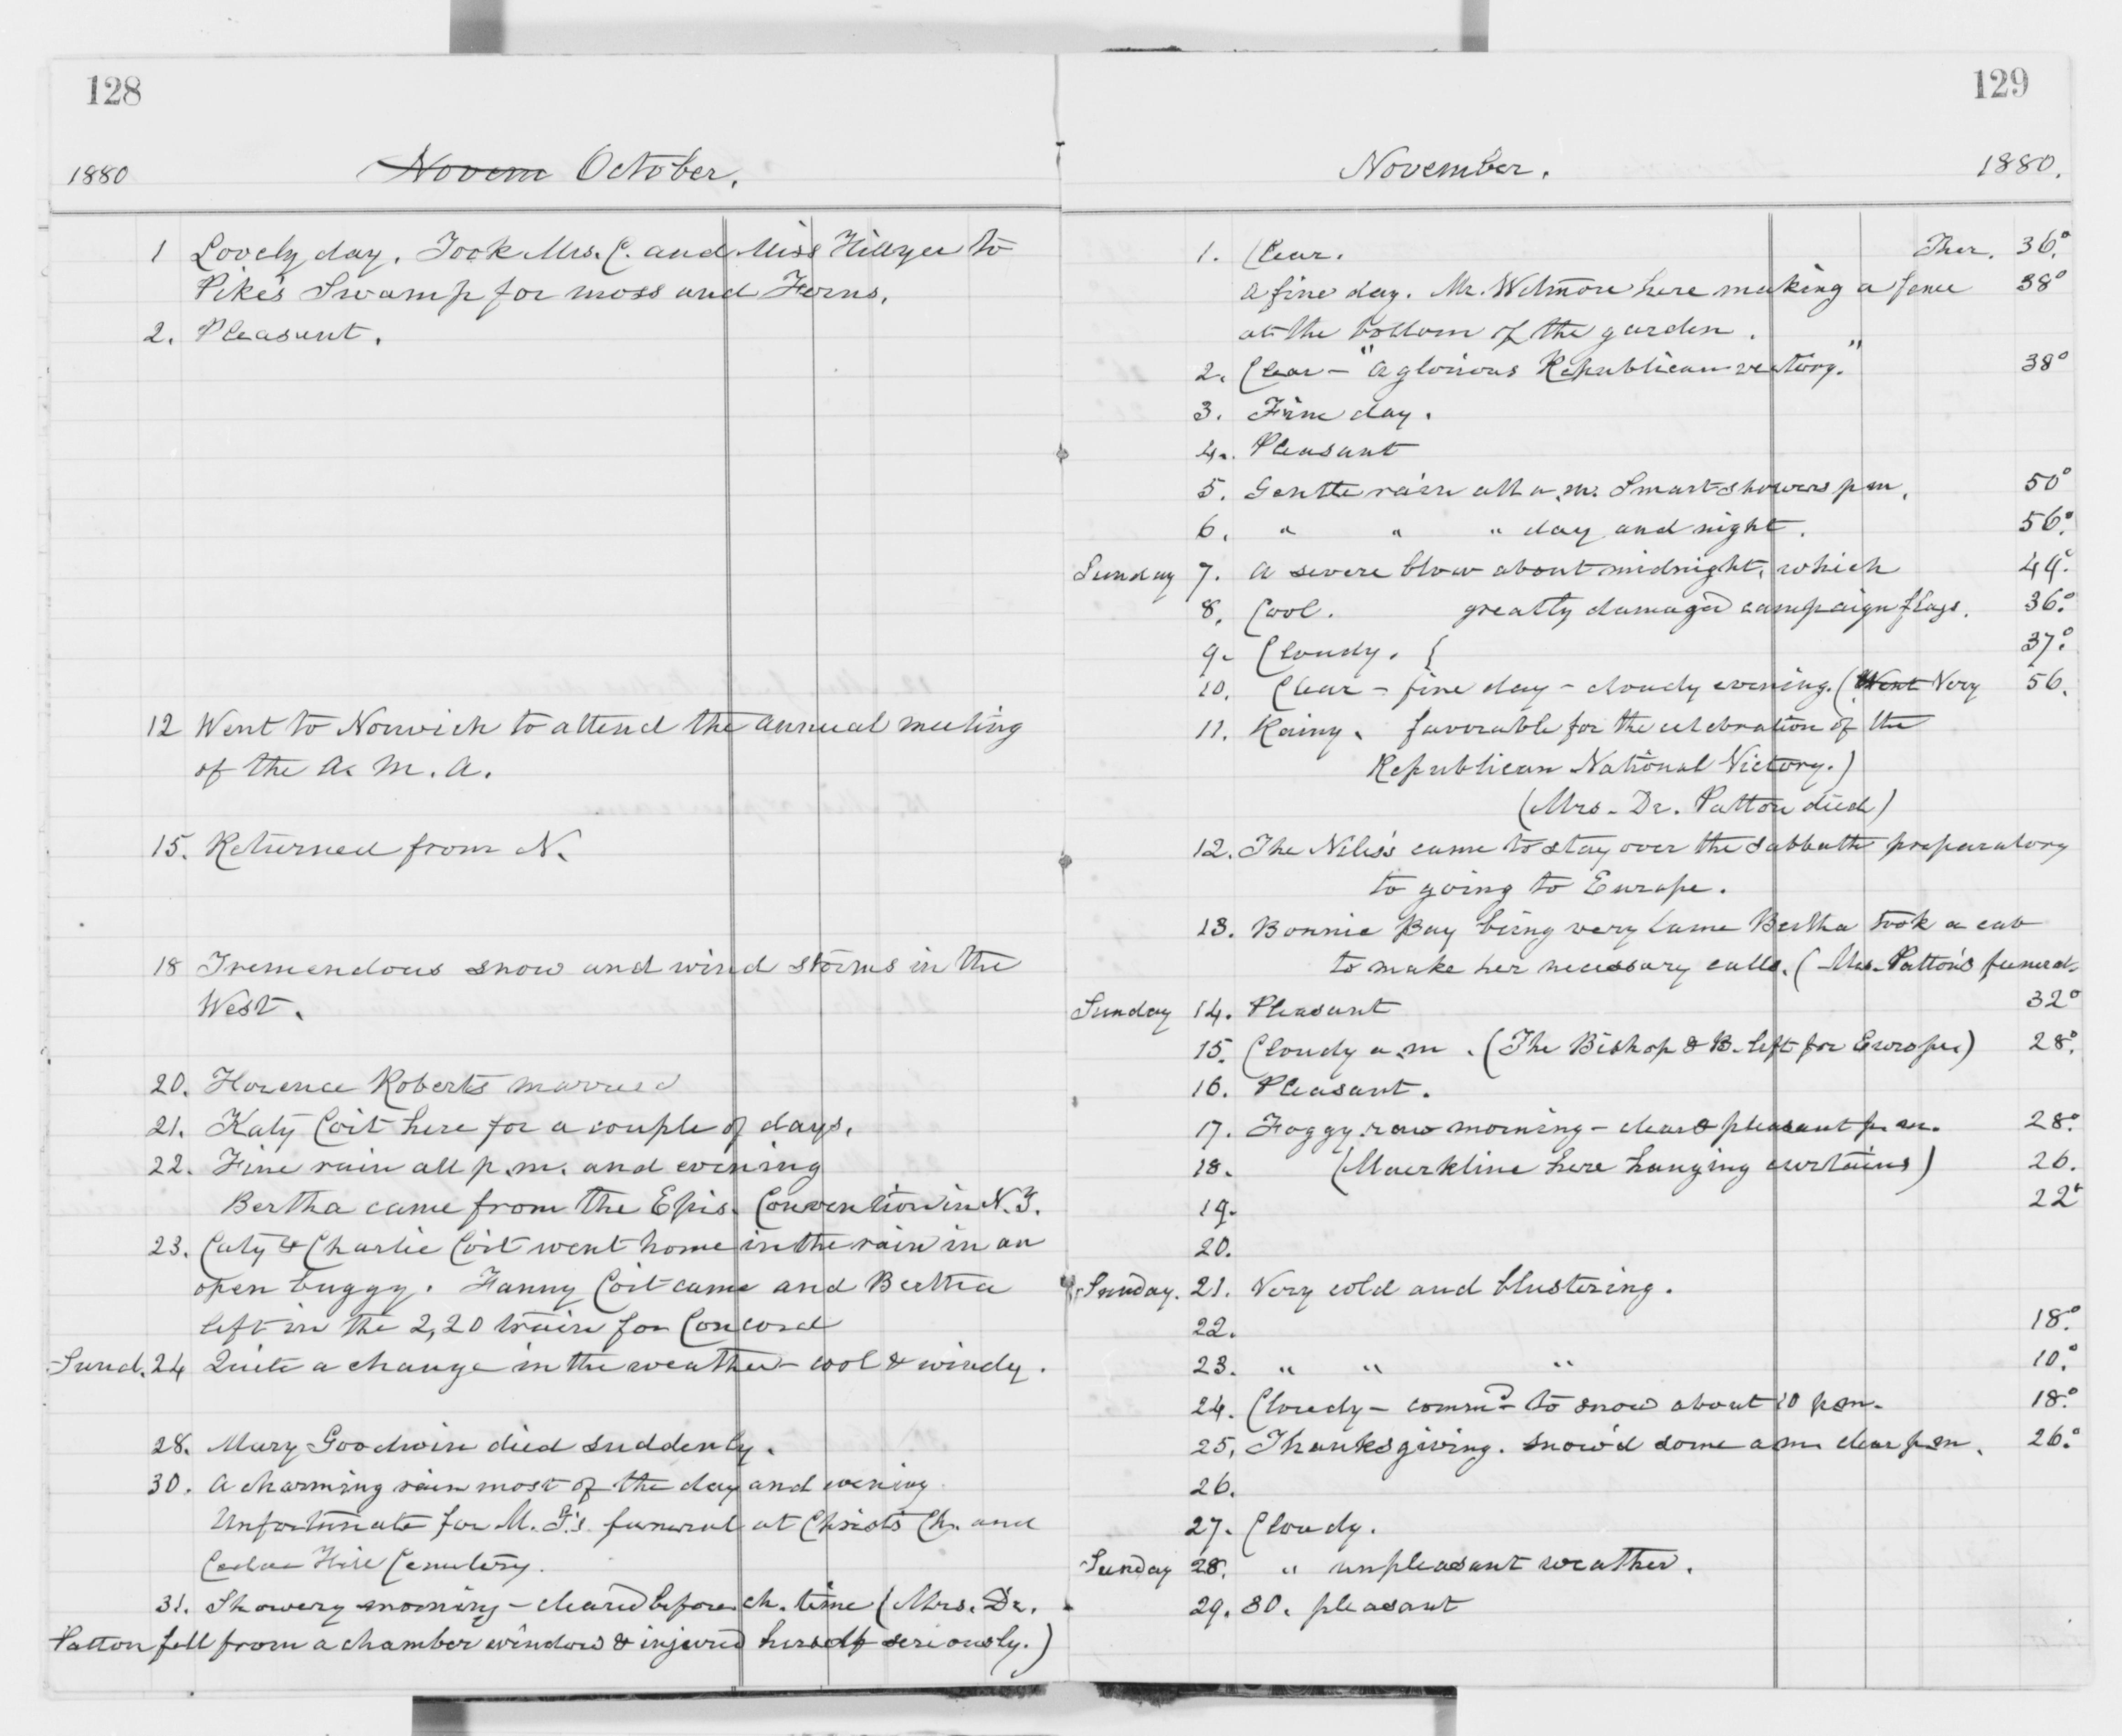 128
1880 Novem October.
1 Lovely day. Took Mrs. C. and Miss Hillyer to
Pike's Swamp for moss and Ferns.
2. Pleasant.
12 Went to Norwich to attend the annual meeting
of the A. M. A.
15. Returned from N.
18 Tremendous snow and wind storms in the
West.
20. Florence Roberts married
21. Katy Coit here for a couple of days.
22. Fine rain all p.m. and evening
Bertha came from the Epis. Convention in N.Y.
23. Caty & Charlie Coit went home in the rain in an
open buggy. Fanny Coit came and Bertha
left in the 2,20 train for Concord
Sund. 24 Quite a change in the weather - cool & windy.
28. Mary Goodwin died suddenly.
30. A charming rain most of the day and evening
Unfortunate for M. G's. funeral at Christ's Ch. and
Cedar Hill Cemetery.
31. Showery morning - cleared before ch. time (Mrs. Dr.
Patton fell from a chamber window & injured herself seriously.)
129
November. 1880.
1. Clear. Ther. 36.°
A fine day. Mr. Wetmore here making a fence 38°
at the bottom of the garden.
2. Clear - "A glorious Republican victory." 38°
3. Fine day.
4. Pleasant
5. Gentle rain all a.m. Smart showers p m. 50°
6. " " " day and night. 56.°
Sunday 7. A severe blow about midnight, which 49.°
8. Cool. greatly damaged campaign flags. 36.°
9. Cloudy. { 37.°
10. Clear - fine day - cloudy evening. (Went Very 56.
11. Rainy. favorable for the celebration of the
Republican National Victory.)
(Mrs. Dr. Patton died)
12. The Niles's came to stay over the Sabbath preparatory
to going to Europe.
13. Bonnie Bay being very lame Bertha took a cab
to make her necessary calls. (Mrs. Patton's funeral.
Sunday 14. Pleasant 32°
15. Cloudy a.m. (The Bishop & B. left for Europe) 28.°
16. Pleasant.
17. Foggy raw morning - clear & pleasant p. m. 28.°
18. (Maerkline here hanging curtains) 26.
19. 22°
20.
Sunday. 21. Very cold and blustering.
22. 18.°
23. " " " 10.°
24. Cloudy - commd to snow about 10 p.m. 18.°
25. Thanksgiving. snow'd some a m. clear p.m. 26.°
26.
27. Cloudy.
Sunday 28. " unpleasant weather.
29. 30. pleasant